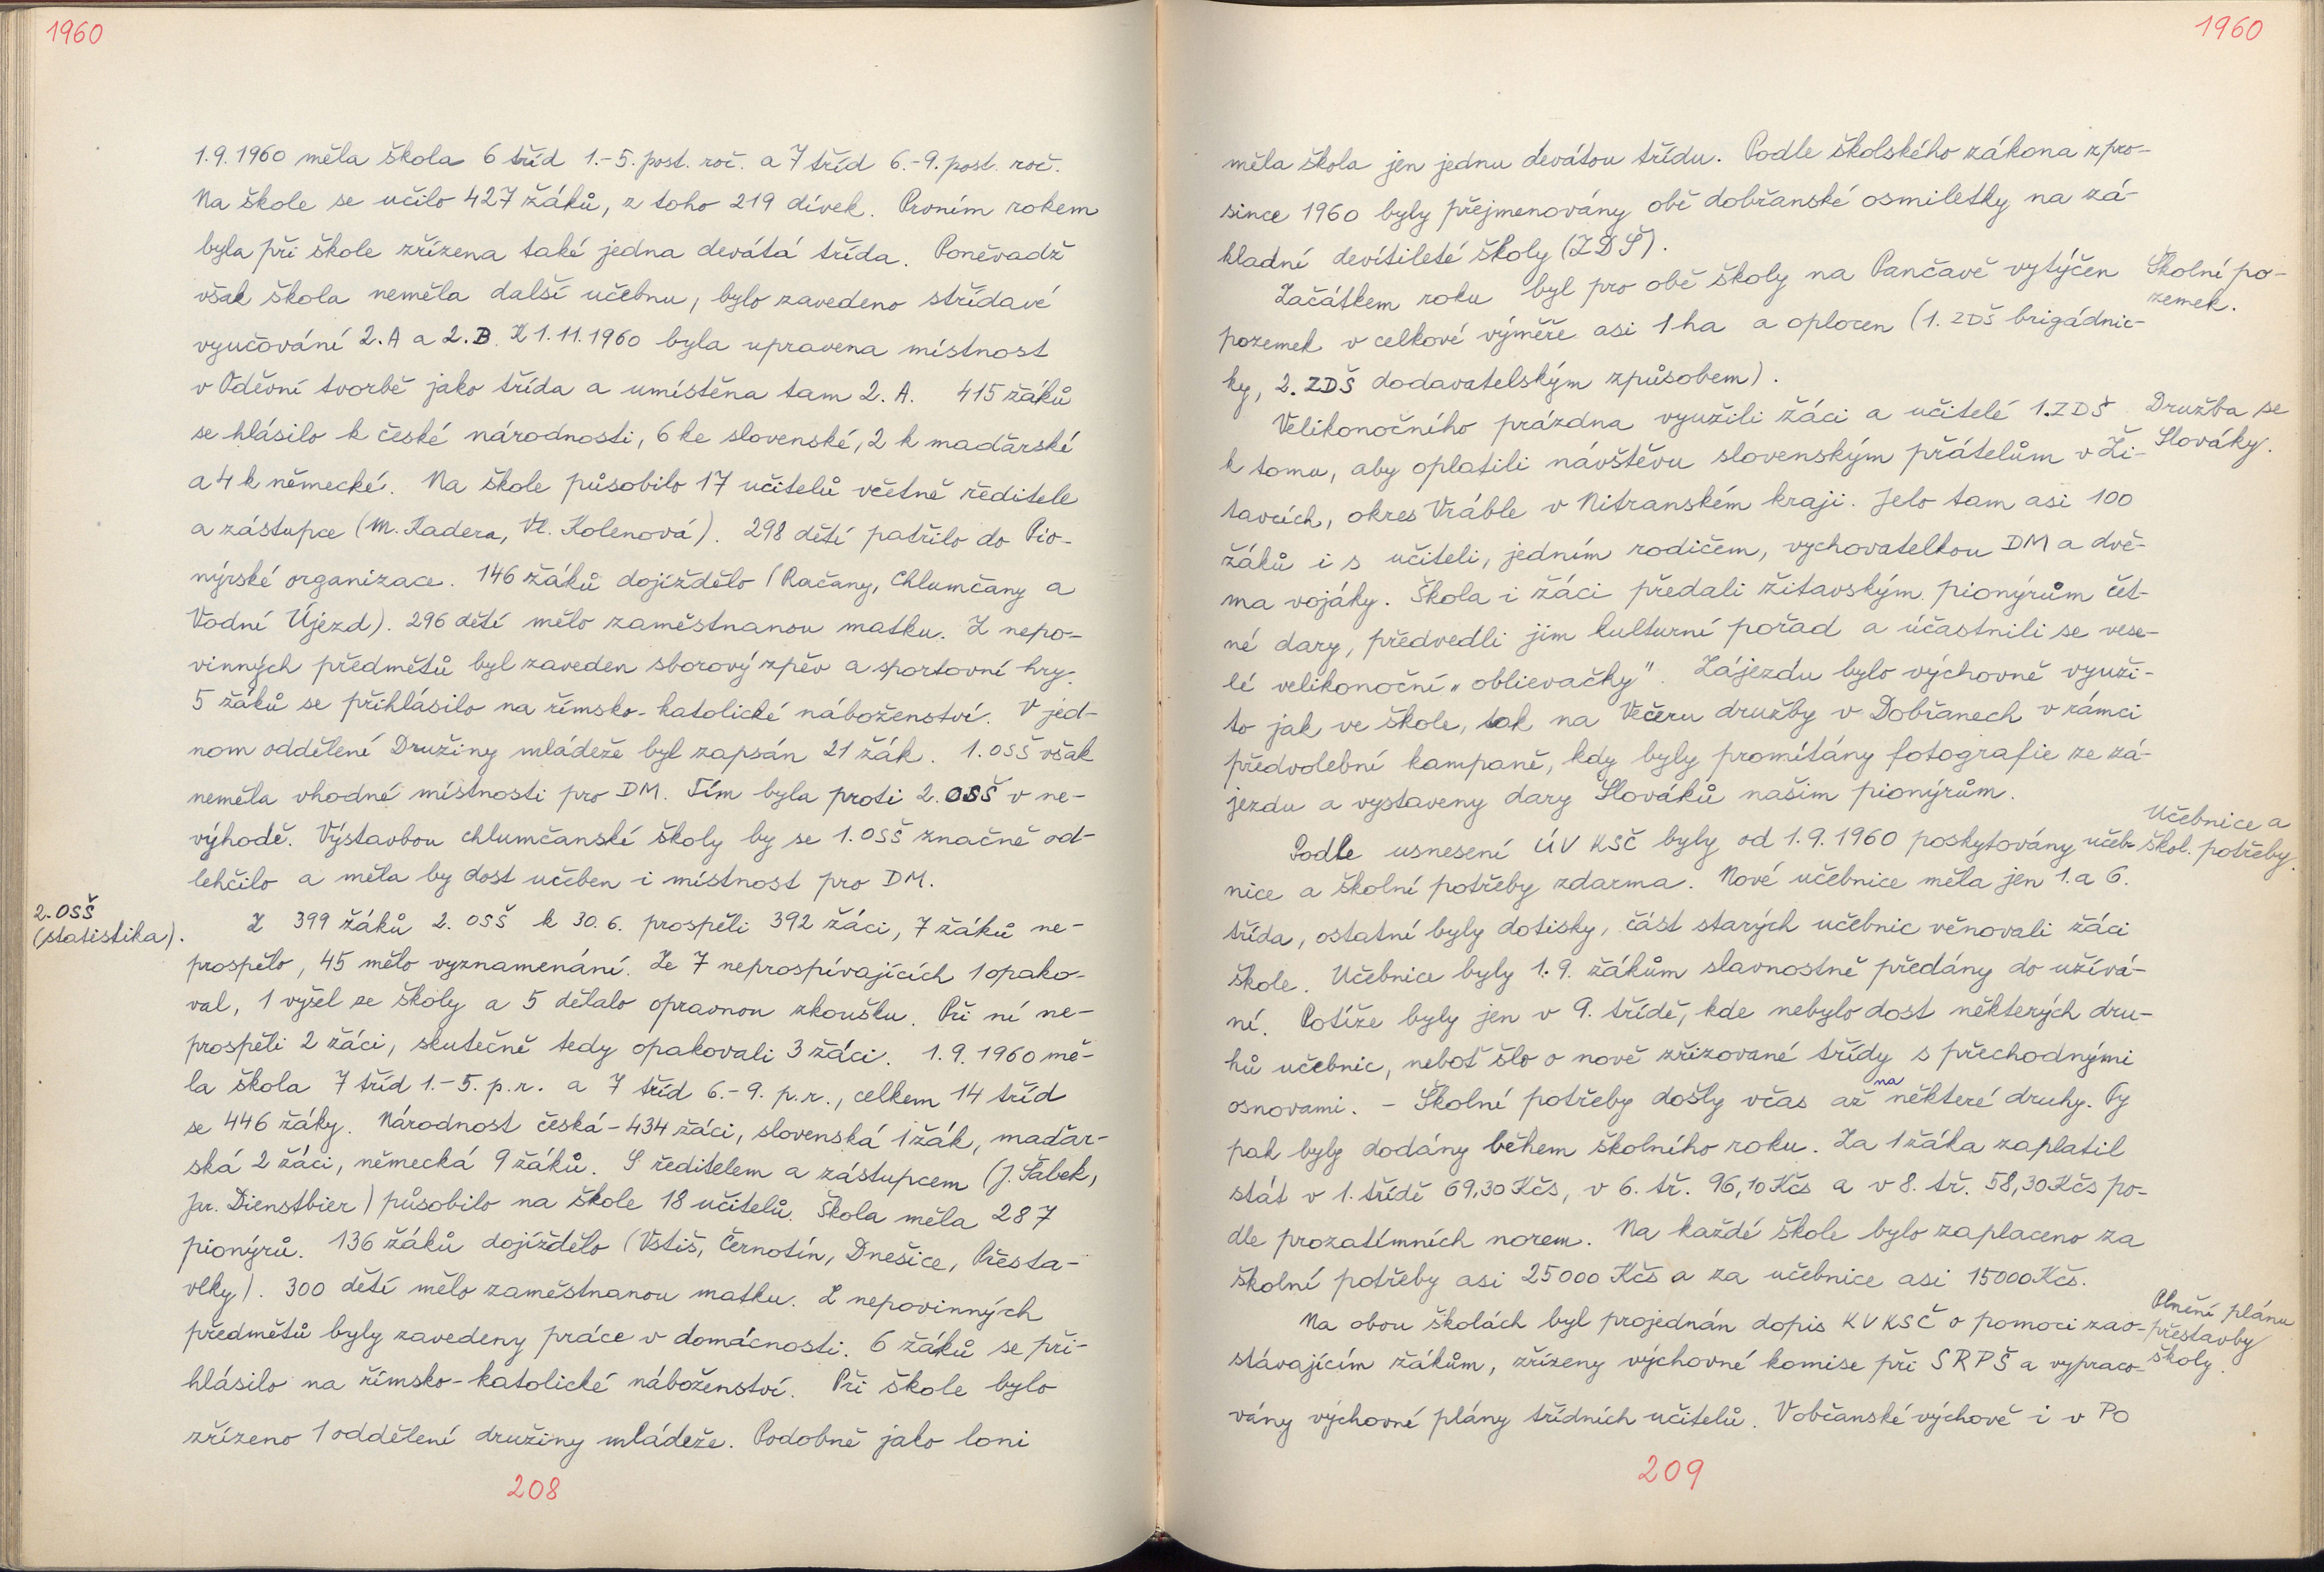 1960
1.9.1960 měla škola 6 tříd 1.-5. post. roč. a 7 tříd 6.-9. post. roč.
Na škole se učilo 427 žáků, z toho 219 dívek. Prvním rokem
byla při škole zřízena také jedna devátá třída. Poněvadž
však škola neměla další učebnu, bylo zavedeno střídavé
vyučování 2.A a 2.B. K 1.11.1960 byla upravena místnost
v Oděvní tvorbě jako třída a umístěna tam 2.A. 415 žáků
se hlásilo k české národnosti, 6 ke slovenské, 2 k maďarské
a 4 k německé. Na škole působilo 17 učitelů včetně ředitele
a zástupce (M. Kadera, Vl. Kolenová). 298 dětí patřilo do Pio-
nýrské organizace. 146 žáků dojíždělo (Račany, Chlumčany a
Vodní Újezd). 296 dětí mělo zaměstnanou matku. Z nepo-
vinných předmětů byl zaveden sborový zpěv a sportovní hry.
5 žáků se přihlásilo na římsko-katolické náboženství. V jed-
nom oddělení Družiny mládeže byl zapsán 21 žák. 1. OSŠ však
neměla vhodné místnosti pro DM. Tím byla proti 2. OSŠ v ne-
výhodě. Výstavbou chlumčanské školy by se 1. OSŠ značně od-
lehčilo a měla by dost učeben i místnost pro DM.
2. OSŠ
(statistika).
Z 399 žáků 2. OSŠ k 30.6. prospěli 392 žáci, 7 žáků ne-
prospělo, 45 mělo vyznamenání. Ze 7 neprospívajících 1 opako-
val, 1 vyšel ze školy a 5 dělalo opravnou zkoušku. Při ní ne-
prospěli 2 žáci, skutečně tedy opakovali 3 žáci. 1.9.1960 mě-
la škola 7 tříd 1.-5. p.r. a 7 tříd 6.-9. p.r., celkem 14 tříd
se 446 žáky. Národnost česká - 434 žáci, slovenská 1 žák, maďar-
ská 2 žáci, německá 9 žáků. S ředitelem a zástupcem (J. Šabek,
Jar. Dienstbier) působilo na škole 18 učitelů. Škola měla 287
pionýrů. 136 žáků dojíždělo (Vstiš, Černotín, Dnešice, Přesta-
vlky). 300 dětí mělo zaměstnanou matku. Z nepovinných
předmětů byly zavedeny práce v domácnosti. 6 žáků se při-
hlásilo na římsko-katolické náboženství. Při škole bylo
zřízeno 1 oddělení družiny mládeže. Podobně jako loni
208
1960
měla škola jen jednu devátou třídu. Podle školského zákona z pro-
since 1960 byly přejmenovány obě dobřanské osmiletky na zá-
kladní devítileté školy (ZDŠ).
Školní po-
zemek.
Začátkem roku byl pro obě školy na Pančavě vytýčen
pozemek v celkové výměře asi 1 ha a oplocen (1. ZDŠ brigádnic-
ky, 2. ZDŠ dodavatelským způsobem).
Družba se
Slováky.
Velikonočního prázdna využili žáci a učitelé 1. ZDŠ
k tomu, aby oplatili návštěvu slovenským přátelům v Ži-
tavcích, okres Vráble v Nitranském kraji. Jelo tam asi 100
žáků i s učiteli, jedním rodičem, vychovatelkou DM a dvě-
ma vojáky. Škola i žáci předali žitavským pionýrům čet-
né dary, předvedli jim kulturní pořad a účastnili se vese-
lé velikonoční „oblievačky". Zájezdu bylo výchovně využi-
to jak ve škole, tak na Večeru družby v Dobřanech v rámci
předvolební kampaně, kdy byly promítány fotografie ze zá-
jezdu a vystaveny dary Slováků našim pionýrům.
Učebnice a
škol. potřeby.
Podle usnesení ÚV KSČ byly od 1.9.1960 poskytovány učeb-
nice a školní potřeby zdarma. Nové učebnice měla jen 1. a 6.
třída, ostatní byly dotisky, část starých učebnic věnovali žáci
škole. Učebnice byly 1.9. žákům slavnostně předány do užívá-
ní. Potíže byly jen v 9. třídě, kde nebylo dost některých dru-
hů učebnic, neboť šlo o nově zřizované třídy s přechodnými
osnovami. - Školní potřeby došly včas až na některé druhy. Ty
pak byly dodány během školního roku. Za 1 žáka zaplatil
stát v 1. třídě 69,30 Kčs, v 6. tř. 96,10 Kčs a v 8. tř. 58,30 Kčs po-
dle prozatímních norem. Na každé škole bylo zaplaceno za
školní potřeby asi 25000 Kčs a za učebnice asi 15000 Kčs.
Plnění plánu
přestavby
školy.
Na obou školách byl projednán dopis KV KSČ o pomoci zao-
stávajícím žákům, zřízeny výchovné komise při SRPŠ a vypraco-
vány výchovné plány třídních učitelů. V občanské výchově i v PO
209